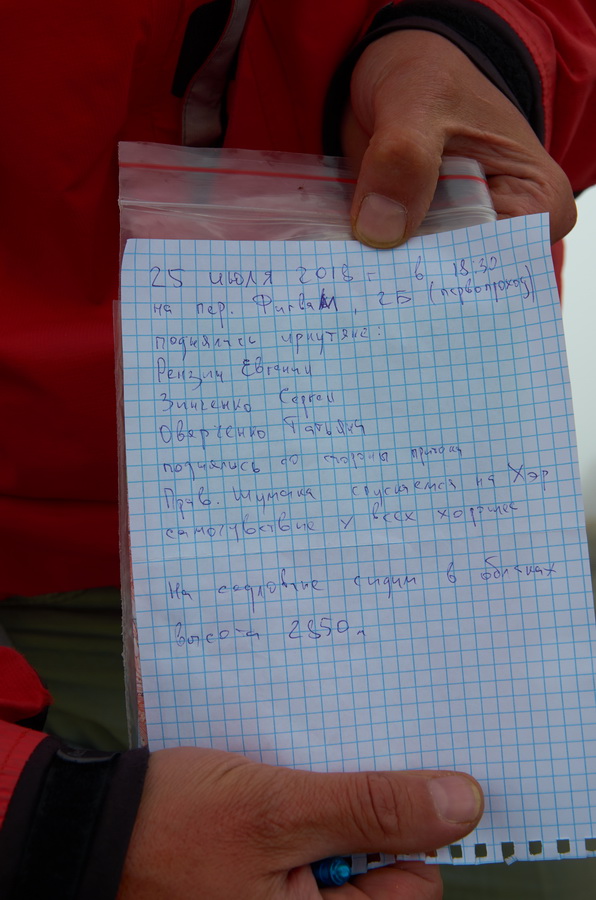 25 июля 2018 г. в 18:30
на пер. , 2Б (первопроход)
поднялись иркутяне:
Рензин Евгений
Зинченко Сергей
Оверченко Татьяна
поднялись со стороны притока
Прав. Шумака спускаемся на Хэр
самочувствие у всех хорошее
На седловине сидим в облаках
Высота 2850 м